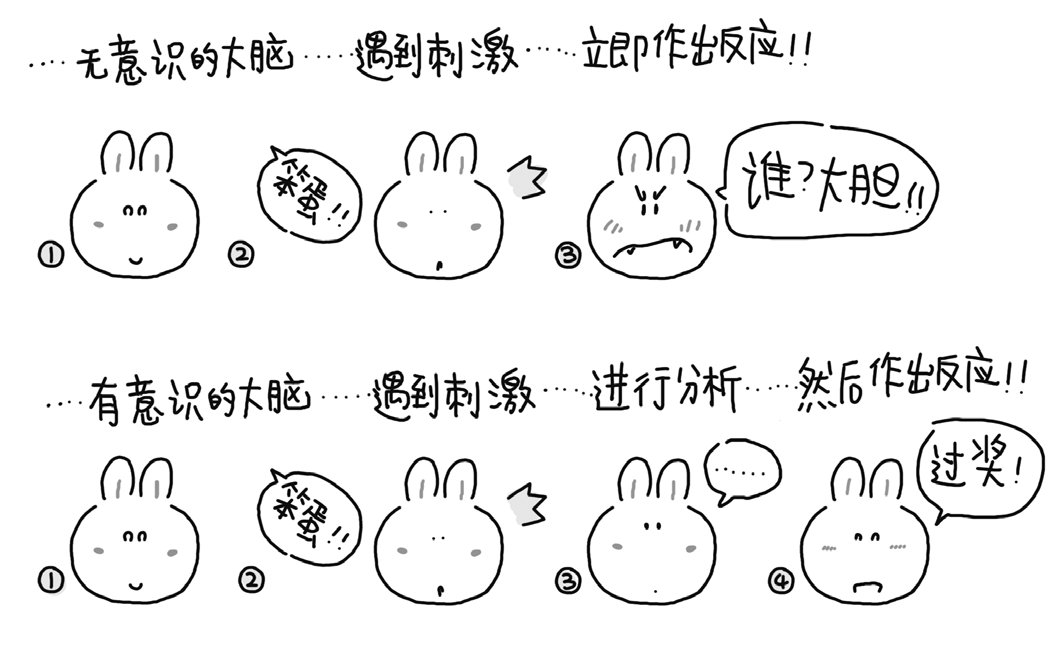 ····无意识的大脑·····遇到刺激·····立即作出反应!!
①
②
笨蛋!!
③
谁?大胆!!
····有意识的大脑·····遇到刺激·····进行分析·····然后作出反应!!
①
②
笨蛋!!
③
······
④
过奖!